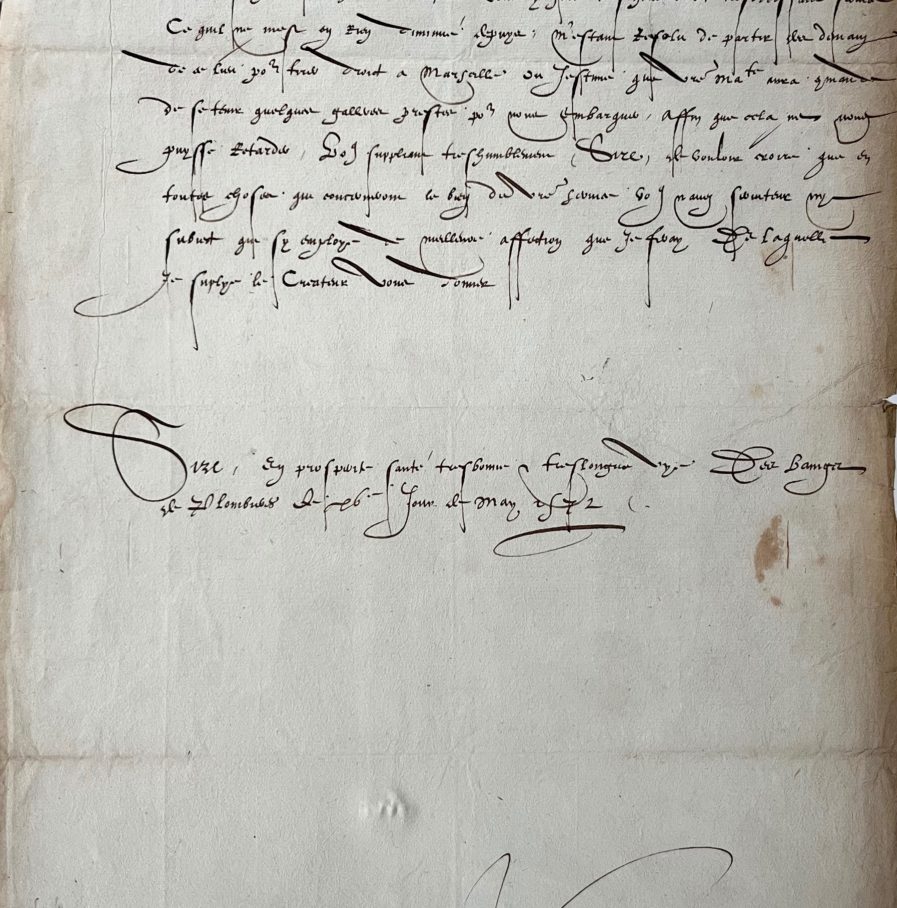 Ce quil ne mest en Rien diminué depuys, m'estant Resolu de partir
de ce lieu por tirer droict a Marseille ou Jestime que vre Mate aura
de se tenir quelques galleres prestes por nous embarquer, affin que cela ne nous
puysse Retarder, Vous suppliant treshumblement, Sire, de vouloir croire que en
toutes choses qui concerneront le bien de vre service vous naurez serviteur ny
subiect que sy employe de meilleure affection que Je feray De laquelle
Je suplye le Createur vous donner
Sire, En prosperite santé tresbonne & treslongue vye Des baings
de Plombieres le xve Jour de May 1572